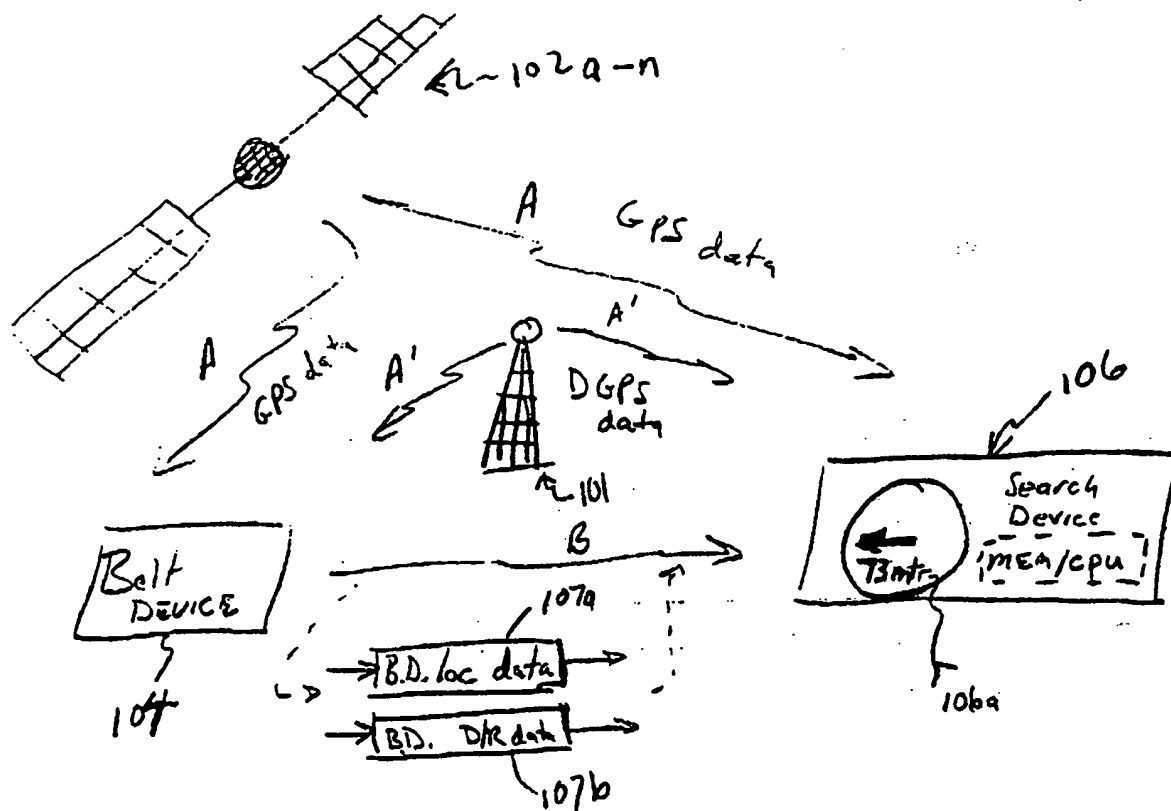 102a-n
A
GPS data
A
GPS data
A'
A'
DGPS
data
101
106
Search
Device
MEM/CPU
73mtr
106a
Belt
DEVICE
104
B
107a
B.D. loc data
B.D. D/R data
107b